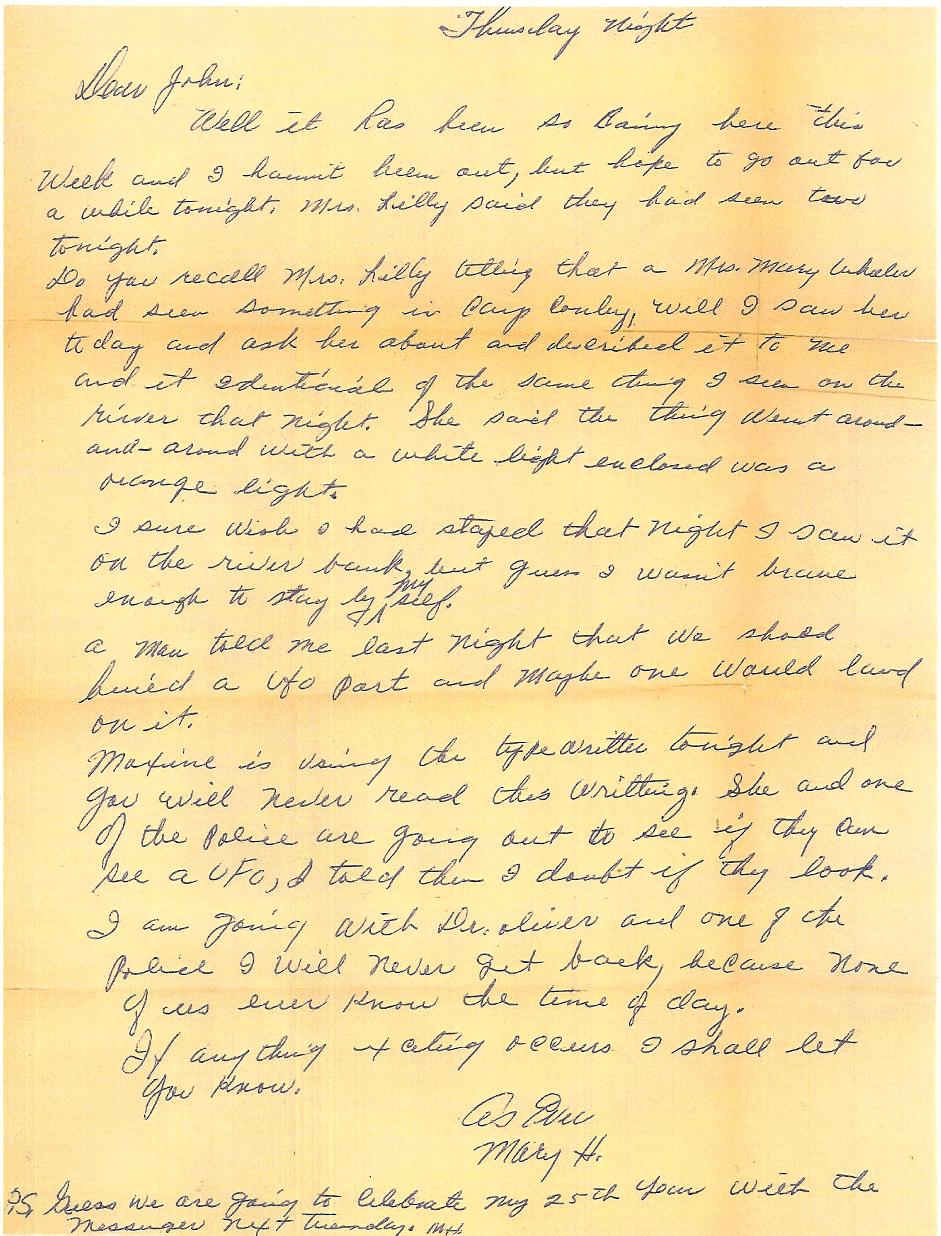 Thursday Night
Dear John:
Well it has been so Rainy here this
Week and I haven't been out, but hope to go out for
a while tonight. Mrs. Lilly said they had seen two
tonight.
Do you recall Mrs. Lilly telling that a Mrs. Mary
had seen something in Camp Conley, Well I saw her
today and ask her about and described it to me
and it identicial of the same thing I seen on the
river that Night. She said the thing Went aroud-
and-aroud with a white light enclosed was a
orange light.
I sure Wish I had stayed that Night I saw it
on the river bank, but guess I wasn't brave
enough to stay by my self.
a Man told me last Night that We shood
a Ufo Port and Maybe one Would land
on it.
Maxine is using the typewritter tonight and
you Will Never read this Writting. She and one
of the Police are going out to see if they can
see a UFO, I told them I doubt if thy look.
I am going With Dr. Oliver and one of the
Police I Will Never get back, because None
of us ever Know the time of day.
If anything exciting occurs I shall let
you Know.
As Ever
Mary H.
P.S. Guess We are going to Celebrate My 25th Year With the
Messenger Next Tuesday. MH.